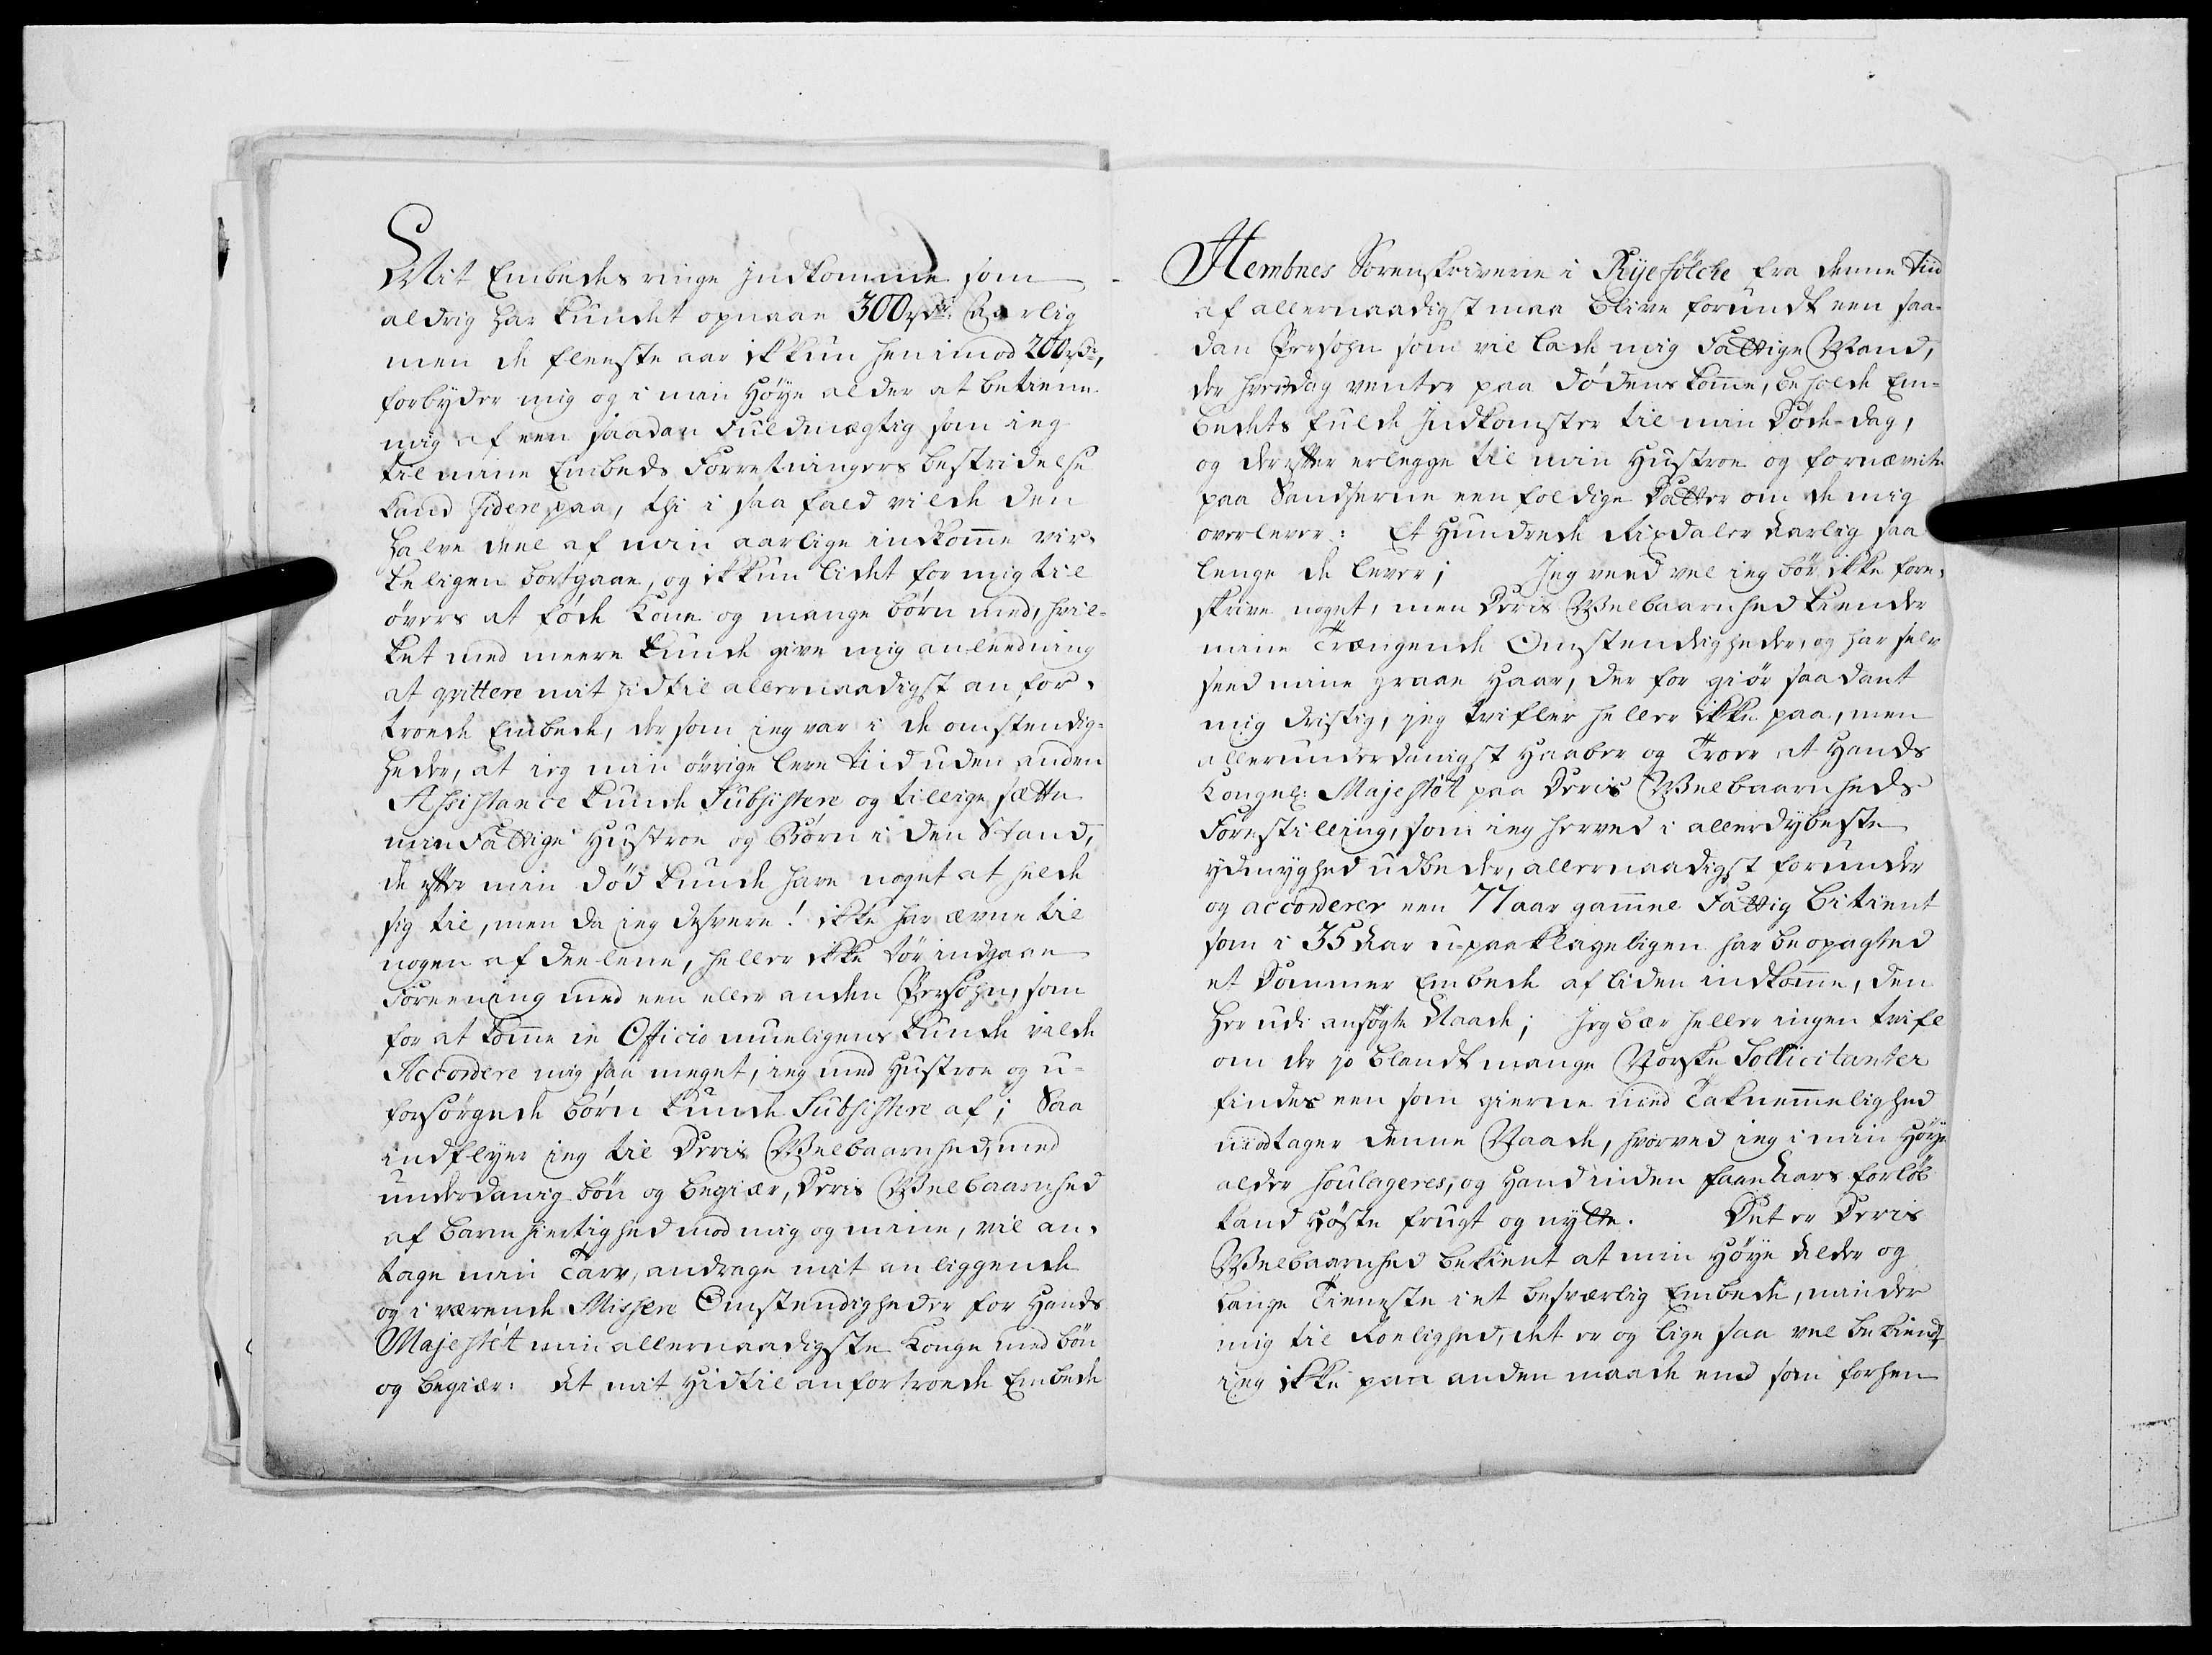 Mit Embedes ringe Indkomme som
aldrig har kundet opnaae 300 rdr. Aarlig
men de fleeste aar ikkun henimod 200 rdr,
forbyder mig og i min Høye alder at betiene
mig af een saadan Fuldmægtig som ieg
til mine Embeds Forretningers bestridelse
kand fidere paa, thi i saa fald vilde den
halve deel af min aarlige indkomme vir-
keligen bortgaae, og ikkun lidet for mig til
övers at föde Kone og mange börn med, hvil-
ket med meere kunde give mig anleedning
at qvittere mit hidtil allernaadigst anfor-
troede Embede, dersom ieg var i de omstendig-
heder, at ieg min övrige leve tiid uden anden
Assistance kunde Subsistere og tillige sætte
min Fattige Hustroe og Börn i den Stand,
de efter min död kunde have noget at helde
sig til, men da ieg desvere! ikke har ævne til
nogen af deelene, heller ikke tör indgaae
Foreening med een eller anden Persohn, som
for at komme in Officio mueligens kunde vilde
Accordere mig saa meget, ieg med Hustroe og u-
forsörgede börn kunde Subsistere af; Saa
indflyer ieg til Deris Welbaarnhed, med
underdanig bön og begiær, Deris Welbaarnhed
af barmhiertighed mod mig og mine, vil an-
tage min Tarv, andrage mit anliggende
og i værende Missere Omstendigheder for Hands
Majestét min allernaadigste Konge med bön
og begiær: At mit Hidtil anfortroede Embede
Hembnes Sorenskriverie i Ryefölche fra denne Tiid
af allernaadigst maa blive forundt een saa-
dan Persohn som vil lade mig Fattige Mand,
der hver dag venter paa Dödens komme, beholde Em-
bedets fulde Indkomster til min Döde-dag,
og derefter erlegge til min Hustroe og fornævnte
paa Sandserne eenfoldige Datter om de mig
overlever: Et Hundrede Rixdaler Aarlig saa
lenge de lever; Jeg veed vel ieg bör ikke fore-
skrive noget, men Deris Welbaarnhed kiender
mine Trængende Omstendigheder, og har selv
seed mine graae Haar, der for giör saadant
mig dristig, jeg tvifler heller ikke paa, men
allerunderdanigst Haaber og Troer at Hands
Kongel: Majestét paa Deris Welbaarnheds
Forestilling, som ieg herved i allerdybeste
ydmyghed udbeder, allernaadigst forunder
og accorderer een 77 aar gammel Fattig Bitient
som i 35 Aar upaaklageligen har beopagted
et Dommer Embede af liden indkomme, den
herudi ansögte Naade; Jeg bær heller ingen tvifl
om der jo blandt mange Norske Sollicitanter
findes een som gierne med Taknemmelighed
modtager denne Naade, hvorved ieg i min Höye
alder soulageres, og Hand inden faae Aars forlöb
kand Höste frugt og nytte. Det er Deris
Welbaarnhed bekient at min Höye Alder og
lange Tieneste i et besværlig Embede, minder
mig til Roelighed, det er og lige saa vel bekiendt
ieg ikke paa anden maade end som forhen